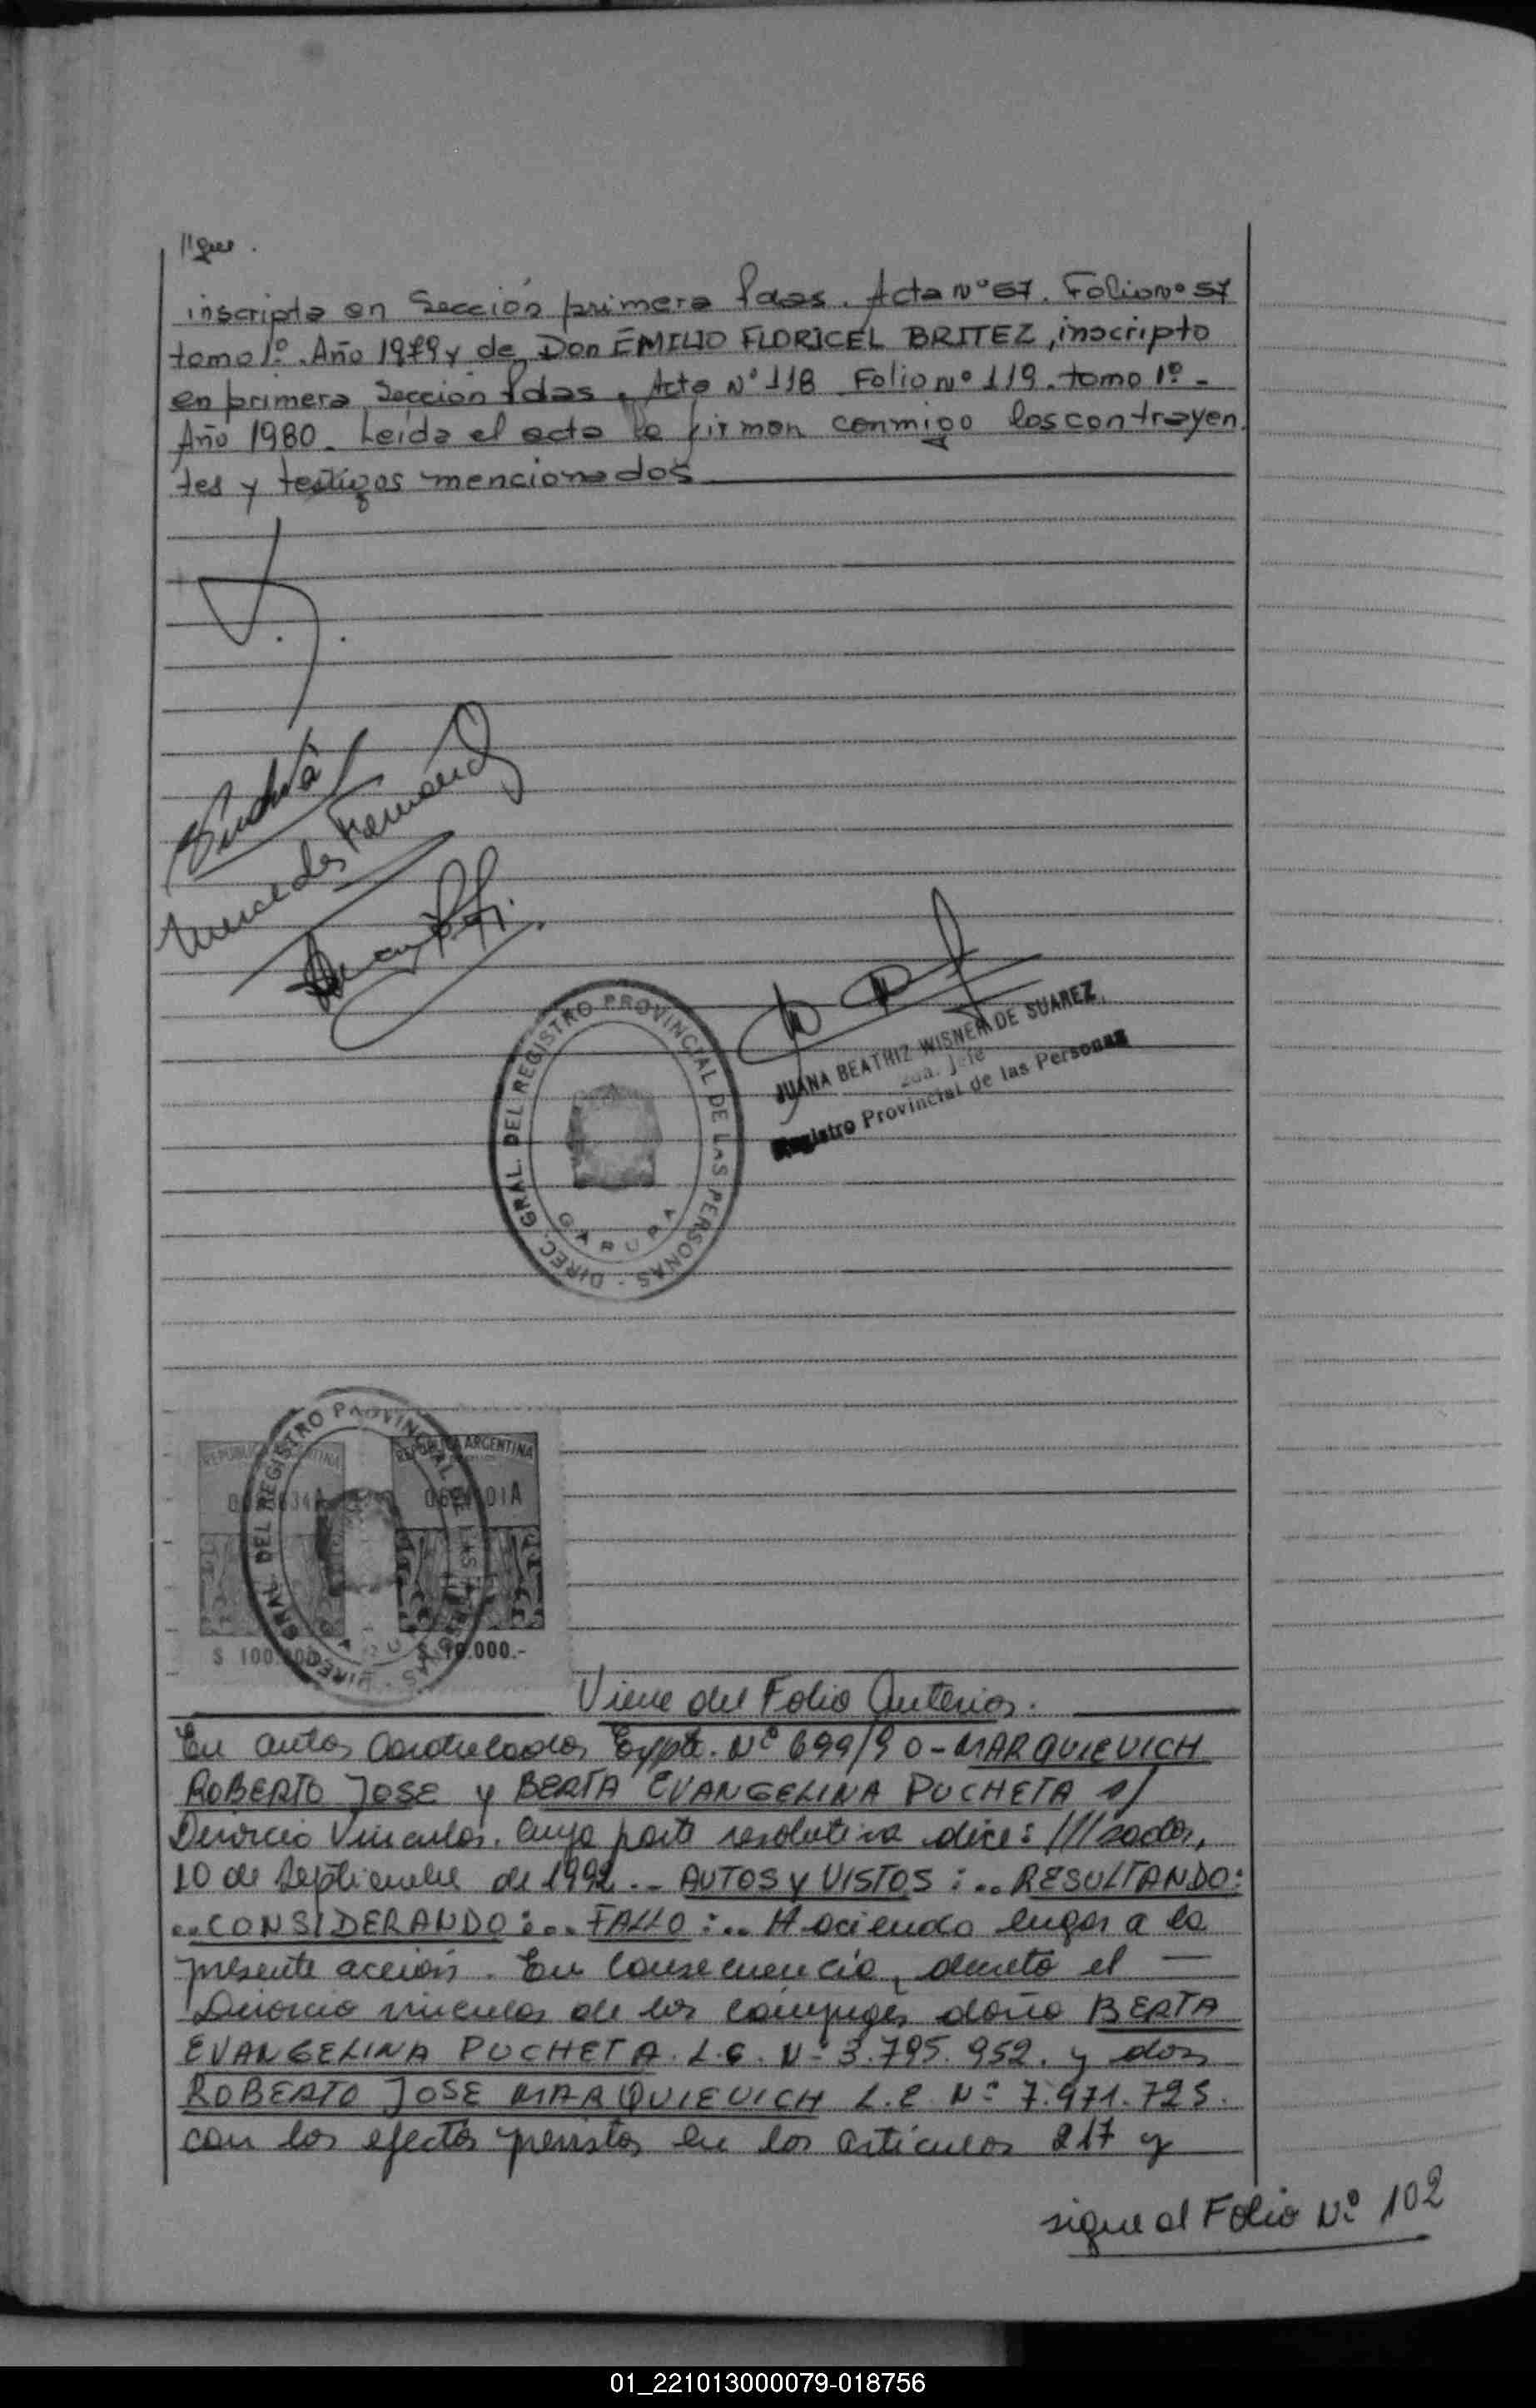 //gue.
inscripta en Sección primera Pdas. Acta Nº 57. Folio Nº 57
tomo 1º. Año 1979 y de Don EMILIO FLORICEL BRITEZ, inscripto
en primera Sección Pdas. Acta Nº 118 Folio Nº 119. tomo 1º -
Año 1980. Leida el acta la firman conmigo los contrayen.
tes y testigos mencionados
Mercedes
DIREC. GRAL. DEL REGISTRO PROVINCIAL DE LAS PERSONAS -
GARUPA
JUANA BEATRIZ WISNER DE SUAREZ
2da. Jefe
Registro Provincial de las Personas
REPUBLICA ARGENTINA
REPUBLICA ARGENTINA
$ 100.000
$ 10.000.-
DIREC. GRAL. DEL REGISTRO PROVINCIAL DE LAS PERSONAS
Viene del Folio Anterior.
En autos Caratulados Expte. Nº 699/90 - MARQUIEVICH
ROBERTO JOSE y BERTA EVANGELINA PUCHETA s/
Divorcio Vincular. Cuya parte resolutiva dice: ///sadas,
10 de Septiembre de 1992.-- AUTOS y VISTOS:.. RESULTANDO:
..CONSIDERANDO:... FALLO:.. Haciendo lugar a la
presente acción. En Consecuencia, decreto el —
Divorcio vincular de los Cónyuges doña BERTA
EVANGELINA PUCHETA. L.C. Nº 3.795.952. y don
ROBERTO JOSE MARQUIEVICH L.E. Nº 7.971.723.
con los efectos previstos en los artículos 217 y
sigue al Folio Nº 102
01_221013000079-018756